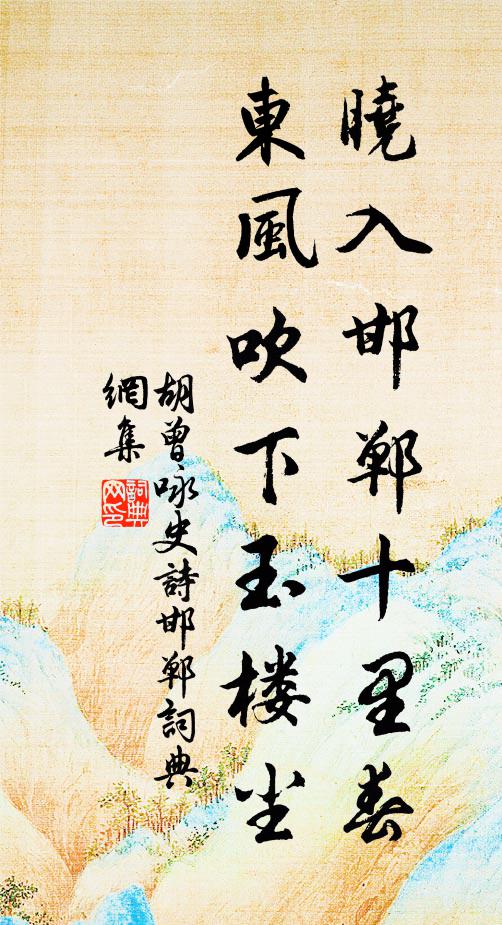 曉入邯鄲十里春
東風吹下玉楼尘
胡曾咏史詩邯鄲詞典
網集
詞典
网印